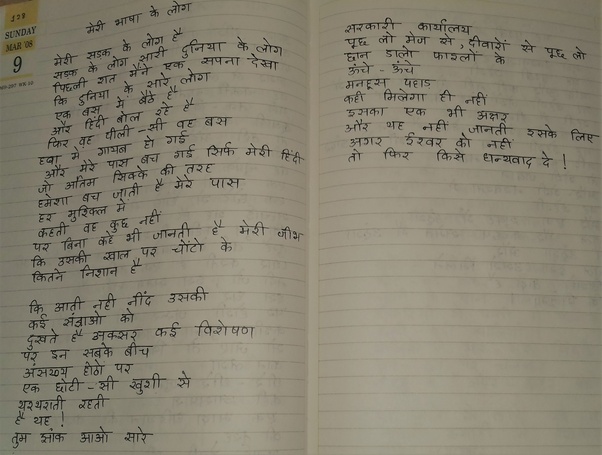 128
SUNDAY
MAR '08
9
मेरी भाषा के लोग
मेरी सड़क के लोग है
सड़क के लोग सारी दुनिया के लोग
पिछली रात मैंने एक सपना देखा
कि दुनिया के सारे लोग
एक बस में बैठे है
और हिंदी बोल रहे है
फिर वह पीली-सी वह बस
हवा मे गायब हो गई
और मेरे पास बच गई सिर्फ मेरी हिंदी
जो अंतिम सिक्के की तरह
हमेशा बच जाती है मेरे पास
हर मुश्किल में
कहती वह कुछ नहीं
पर बिना कहे भी जानती है मेरी जीभ
कि उसकी खाल पर चोटो के
कितने निशान है
कि आती नही नींद उसकी
कई संज्ञाओ को
दुखते है अक्सर कई विशेषण
पर इन सबके बीच
असंख्य होठों पर
एक छोटी-सी खुशी से
थरथराती रहती
है यह !
तुम झांक आओ सारे
सरकारी कार्यालय
पूछ लो मेज से, दीवारों से पूछ लो
छान डालो फाइलों के
ऊंचे-ऊंचे
मनहूस पहाड़
कही मिलेगा ही नहीं
इसका एक भी अक्षर
और यह नहीं जानती इसके लिए
अगर ईश्वर को नहीं
तो फिर किसे धन्यवाद दे !